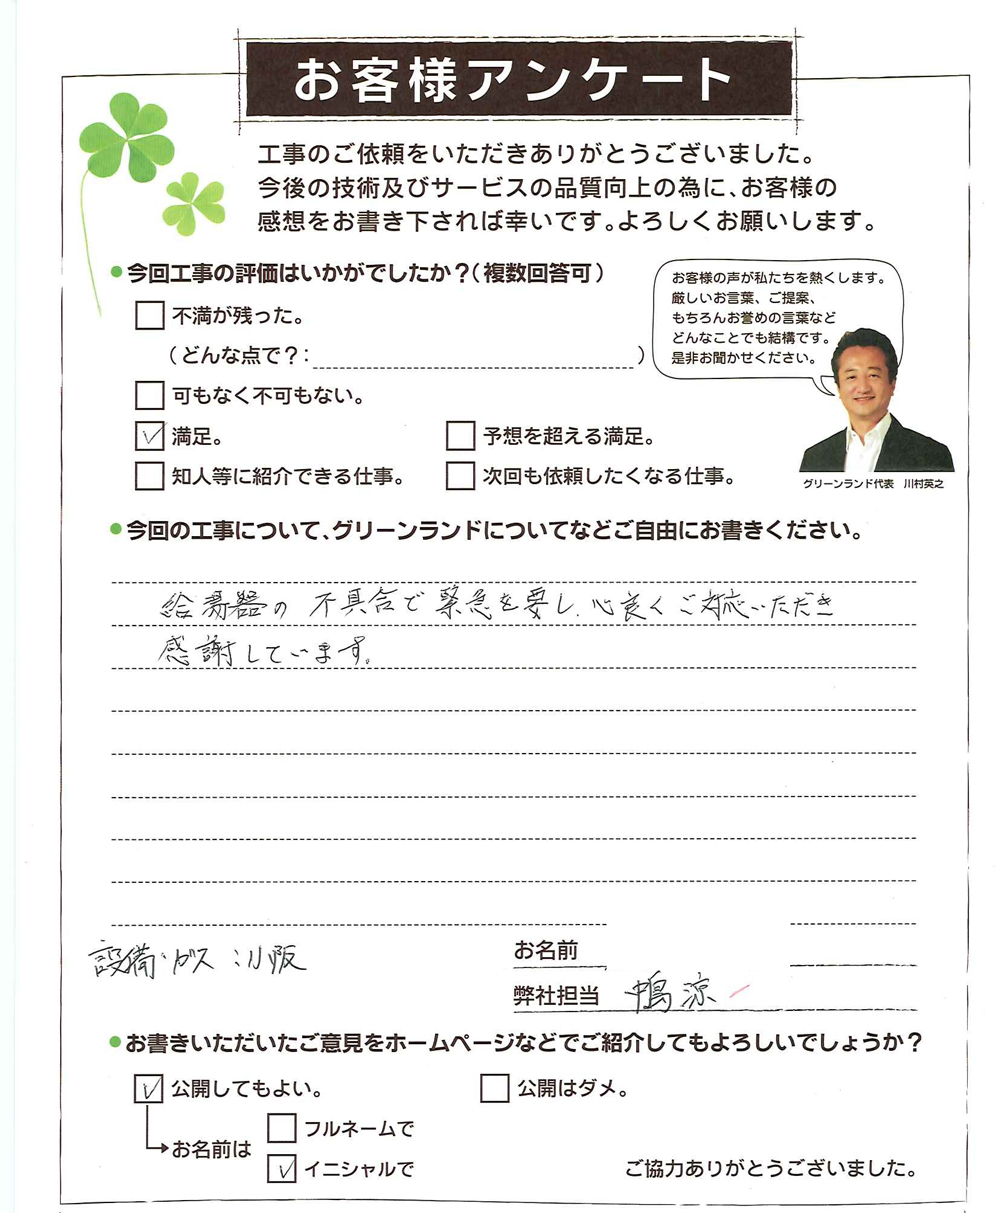 お客様アンケート
工事のご依頼をいただきありがとうございました。
今後の技術及びサービスの品質向上の為に、お客様の
感想をお書き下されば幸いです。よろしくお願いします。
●今回工事の評価はいかがでしたか？（複数回答可）
不満が残った。
（どんな点で？：　）
可もなく不可もない。
満足。
予想を超える満足。
知人等に紹介できる仕事。
次回も依頼したくなる仕事。
お客様の声が私たちを熱くします。
厳しいお言葉、ご提案、
もちろんお誉めの言葉など
どんなことでも結構です。
是非お聞かせください。
グリーンランド代表　川村英之
●今回の工事について、グリーンランドについてなどご自由にお書きください。
給湯器の不具合で緊急を要し、心良くご対応いただき
感謝しています。
設備・ガス：小阪
お名前
弊社担当　鴨 涼
●お書きいただいたご意見をホームページなどでご紹介してもよろしいでしょうか？
公開してもよい。
公開はダメ。
お名前は
フルネームで
イニシャルで
ご協力ありがとうございました。